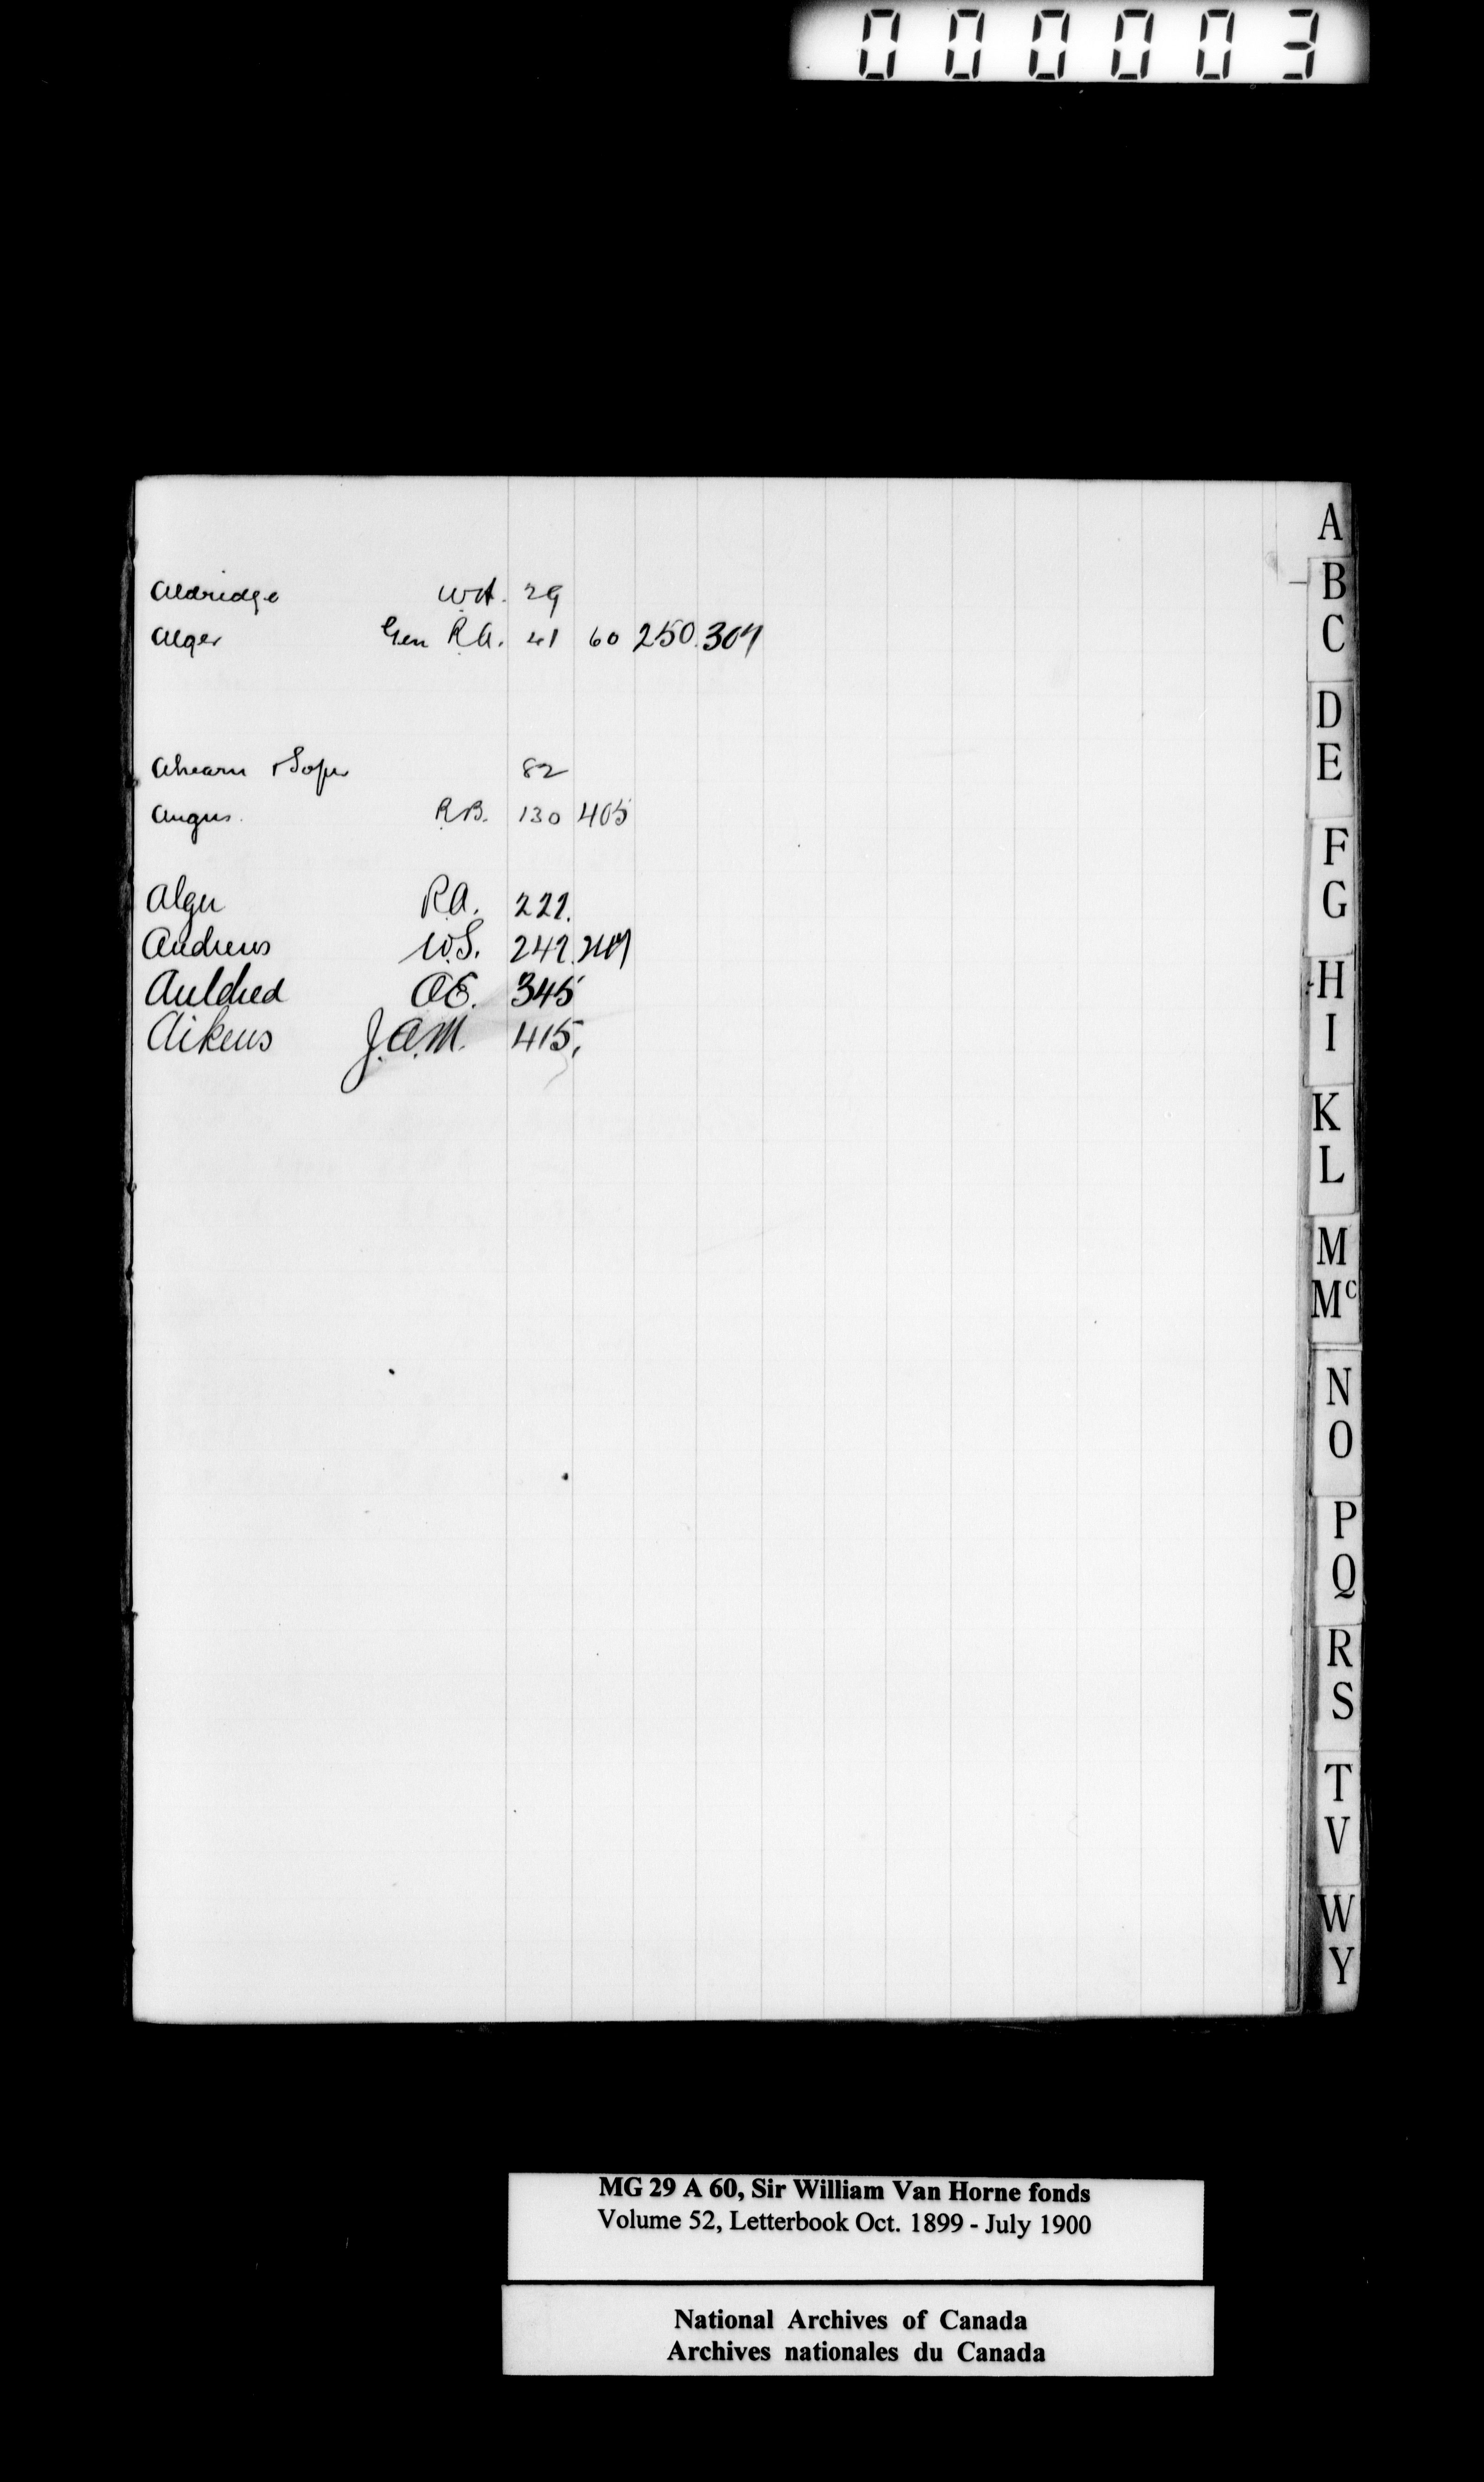 000003
Aldridge W.H. 29
Alger Gen R.A. 41 60 250. 307
Ahearn & Soper 82
Angus. R.B. 130 405
Alger R.A. 222.
Andrews W.S. 242.
Auldred O.E. 345
Aikens J.A.M. 415.
A
B
C
D
E
F
G
H
I
K
L
M
Mc
N
O
P
Q
R
S
T
V
W
Y
MG 29 A 60, Sir William Van Horne fonds
Volume 52, Letterbook Oct. 1899 - July 1900
National Archives of Canada
Archives nationales du Canada